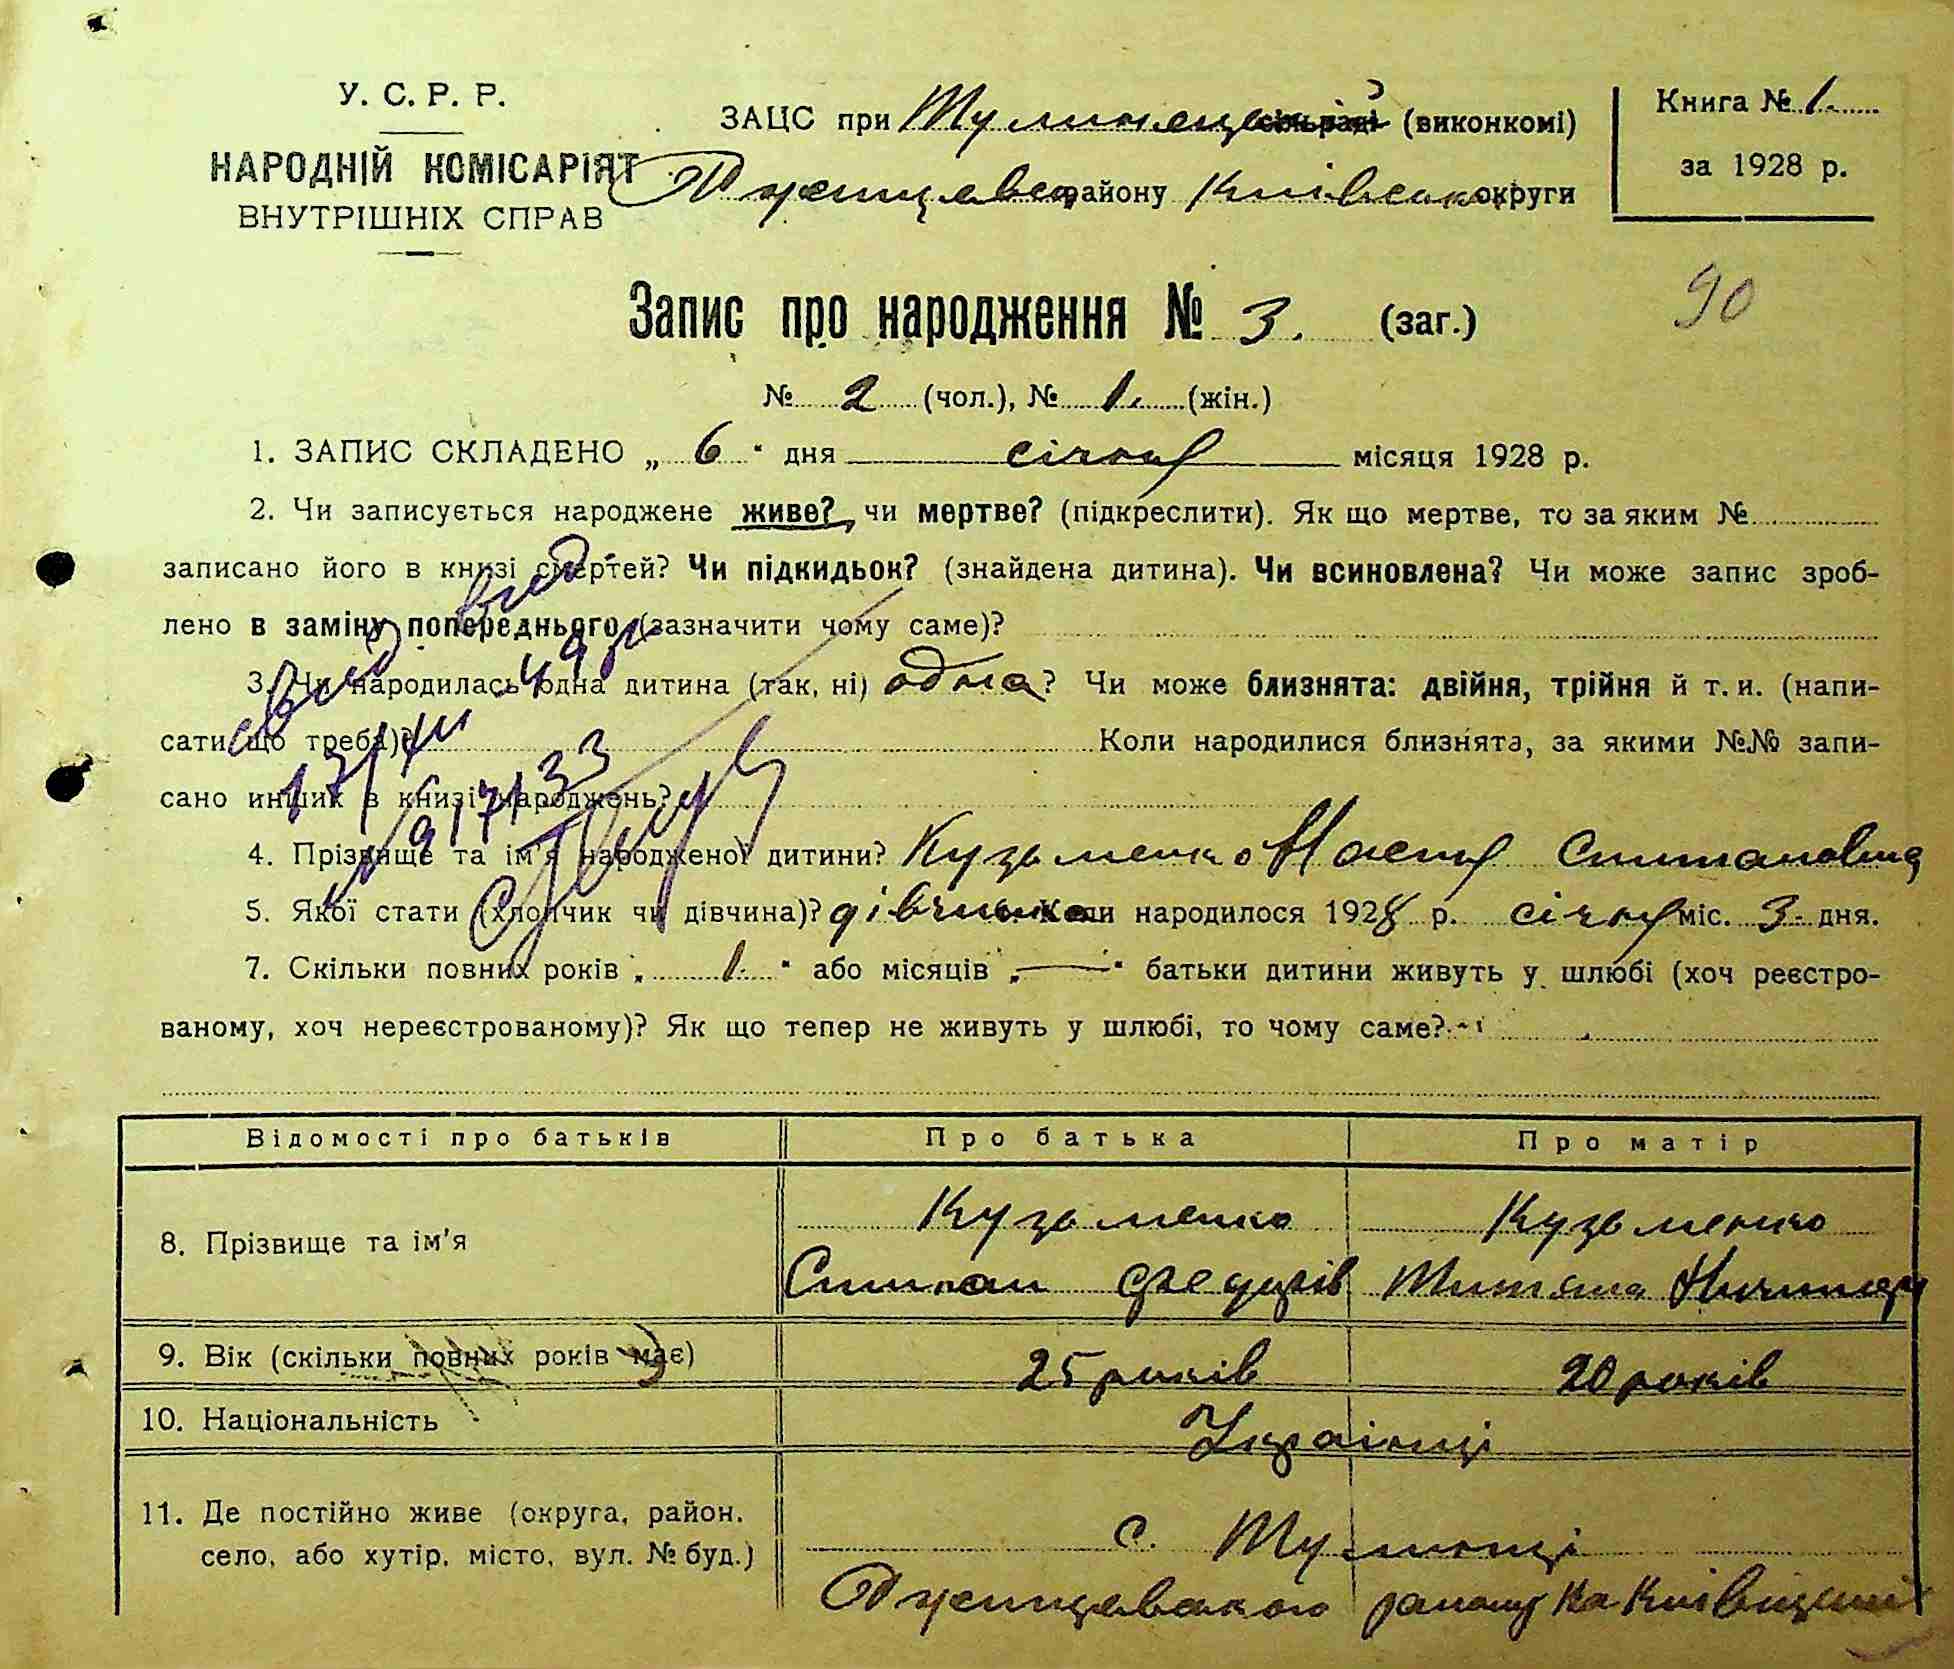 У. С. Р. Р.
НАРОДНІЙ КОМІСАРІЯТ
ВНУТРІШНІХ СПРАВ
ЗАЦС при сільраді (виконкомі)
району Київської округи
Книга № 1.
за 1928 р.
90
Запис про народження № 3. (заг.)
№ 2 (чол.), № 1. (жін.)
1. ЗАПИС СКЛАДЕНО „ 6 " дня січня місяця 1928 р.
2. Чи записується народжене живе? чи мертве? (підкреслити). Як що мертве, то за яким №
записано його в книзі смертей? Чи підкидьок? (знайдена дитина). Чи всиновлена? Чи може запис зроб-
лено в заміну попереднього (зазначити чому саме)?
3. Чи народилась одна дитина (так, ні) одна? Чи може близнята: двійня, трійня й т. и. (напи-
сати що треба)? Коли народилися близнята, за якими №№ запи-
сано инших в книзі народжень?
4. Прізвище та ім'я народженої дитини? Кузьменко Настя Степановна
5. Якої стати (хлопчик чи дівчина)? дівчинка Коли народилося 1928 р. січня міс. 3 дня.
7. Скільки повних років „ 1. " або місяців „ — " батьки дитини живуть у шлюбі (хоч реєстро-
ваному, хоч нереєстрованому)? Як що тепер не живуть у шлюбі, то чому саме?
Відомості про батьків Про батька Про матір
8. Прізвище та ім'я Кузьменко Кузьменко
9. Вік (скільки повних років має) 25 років 20 років
10. Національність Українці
11. Де постійно живе (округа, район, с.
село, або хутір, місто, вул. № буд.) району на Київщині